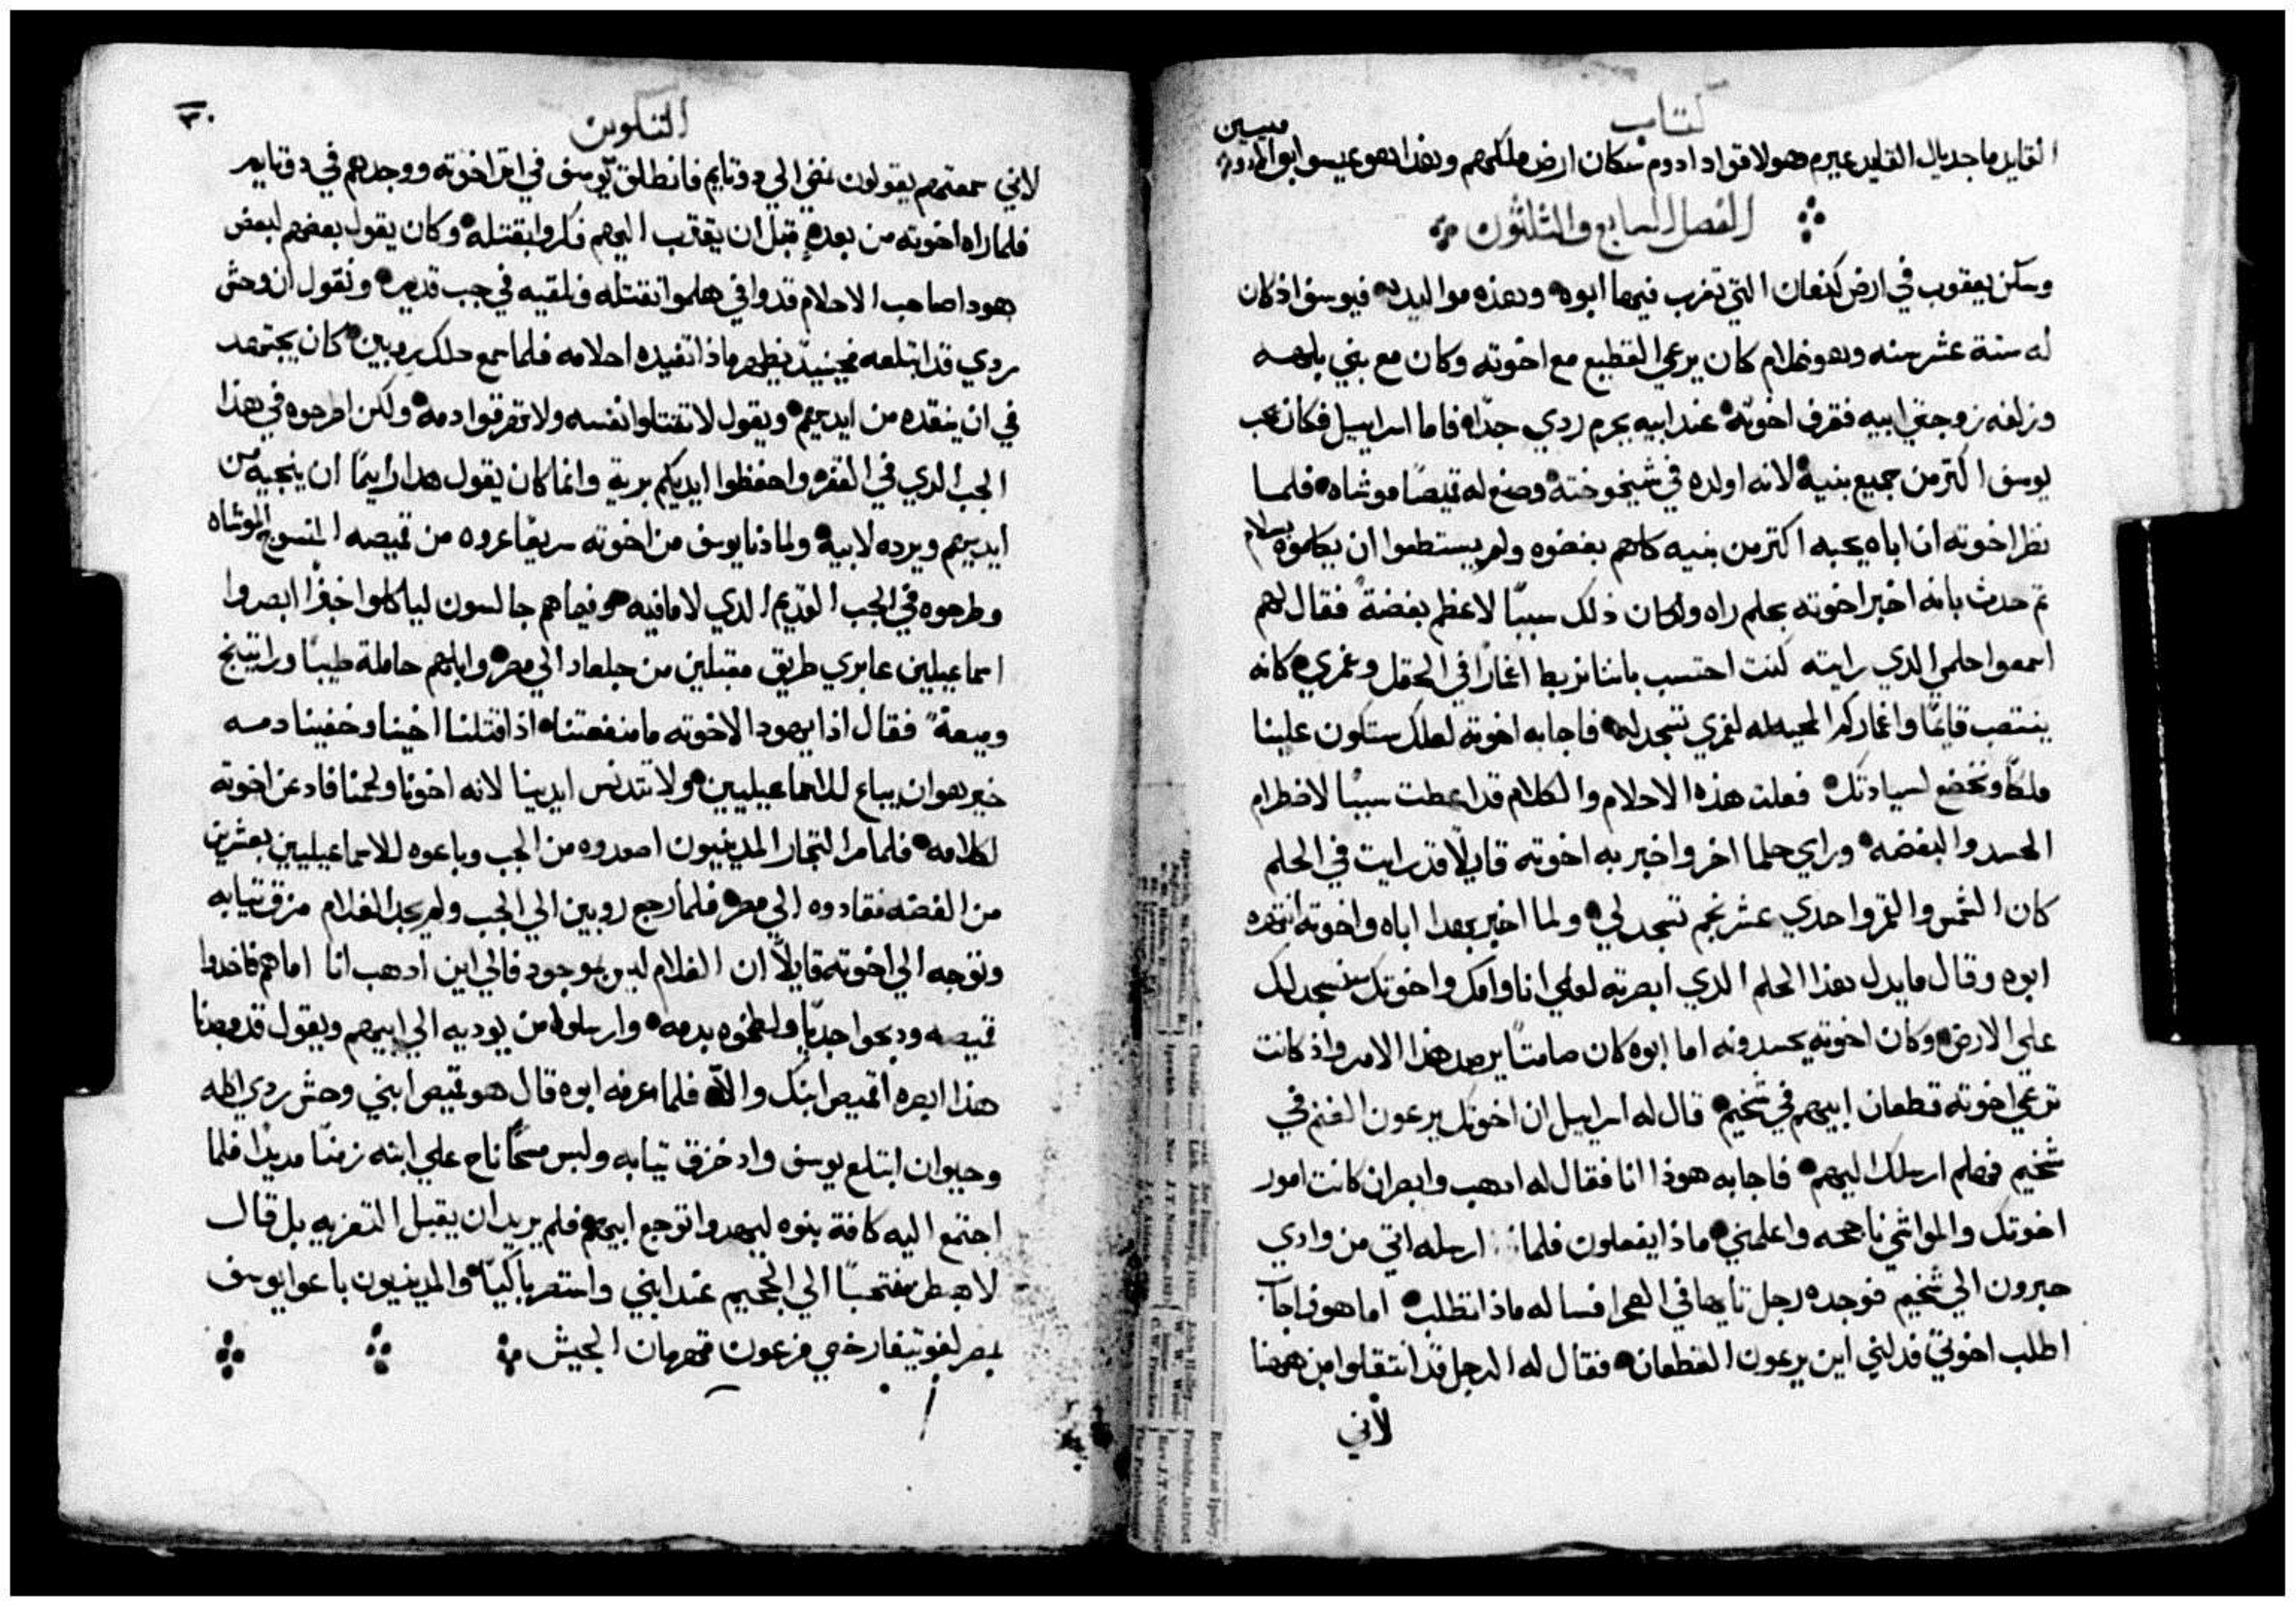 كتاب
القايد ماجديال القايد عيرم هولا قواد ادوم سكان ارض ملكهم وهذا هو عيسو ابو الادوميين
الفصل السابع والثلثون
وسكن يعقوب في ارض كنعان التي تغرب فيها ابوه وهذه مواليده فيوسف اذ كان
له ستة عشر سنه وهو غلام كان يرعي القطيع مع اخوته وكان مع بني بلهه
وزلفه زوجتي ابيه فقرف اخوته عند ابيه بجرم ردي جدًا فاما اسراييل فكان يحب
يوسف اكتر من جميع بنيه لانه اولده في شيخوخته وصنع له قميصًا موشاه فلما
نظر اخوته ان اباه يحبه اكتر من بنيه كلهم بغضوه ولم يستطعوا ان يكلموه بسلام
تم حدث بانه اخبر اخوته بحلم راه وكان ذلك سببًا لاعظم بغضة فقال لهم
اسمعوا حلمي الدي رايته كنت احتسب باننا نربط اغمارًا في الحقل وغمري كانه
ينتصب قايمًا واغماركم المحيطه لغمري تسجد له فاجابه اخوته لعلك ستكون علينا
ملكًا ونخضع لسيادتك فعلت هذه الاحلام والكلام قد اعطت سببًا لاضطرام
الحسد والبغضه وراي حلما اخر واخبر به اخوته قايلًا قد رايت في الحلم
كان الشمس والقمر واحدي عشر نجم تسجد لي ولما اخبر بهدا اباه واخوته انتهره
ابوه وقال ما يدل هذا الحلم الدي ابصرته لعلي انا وامك واخوتك سنسجد لك
علي الارض وكان اخوته يحسدونه اما ابوه كان صامتًا يرصد هذا الامر واذ كانت
ترعي اخوته قطعان ابيهم في شخيم قال له اسراييل ان اخوتك يرعون الغنم في
شخيم فهلم ارسلك اليهم فاجابه هوذا انا فقال له ادهب وابصر ان كانت امور
اخوتك والمواشي ناجحه واعلمني ماذا يفعلون فلما ارسله اتي من وادي
حبرون الي شخيم فوجده رجل تايها في الصحرا فساله ماذا تطلب اما هو فاجاب
اطلب اخوتي فدلني اين يرعون القطعان فقال له الرجل قد انتقلوا من ههنا
لاني
التكوين
٣٠
لاني سمعتهم يقولون نمضي الي دوتايم فانطلق يوسف في اتر اخوته ووجدهم في دوتايم
فلما راه اخوته من بعده قبل ان يقترب اليهم فكروا بقتله وكان يقول بعضهم لبعض
هودا صاحب الاحلام قد وافي هلموا نقتله ونلقيه في جب قديم ونقول ان وحش
ردي قد ابتلعه فحينيد يظهر ماذا تفيده احلامه فلما سمع دلك روبين كان يجتهد
في ان ينقده من ايديهم ويقول لا تقتلوا نفسه ولا تهرقوا دمه ولكن اطرحوه في هذا
الجب الدي في القفر واحفظوا ايديكم برية وانما كان يقول هدا رايمًا ان ينجيه من
ايديهم ويرده لابيه ولما دنا يوسف من اخوته سريعًا عروه من قميصه المنسوج الموشاه
وطرحوه في الجب القديم الدي لا ما فيه وفيما هم جالسون لياكلوا خبزًا ابصروا
اسماعيليين عابري طريق مقبلين من جلعاد الي مصر وابلهم حاملة طيبًا وراتينج
وميعة فقال اذا يهودا لاخوته ما منفعتنا اذا قتلنا اخينا وخفينا دمه
خير هو ان يباع للاسماعيليين ولا تتدنس ايدينا لانه اخونا ولحمنا فادعن اخوته
لكلامه فلما مر التجار المدينيون اصعدوه من الجب وباعوه للاسماعيليين بعشرين
من الفضه فقادوه الي مصر فلما رجع روبين الي الجب ولم يجد الغلام مزق تيابه
وتوجه الي اخوته قايلًا ان الغلام ليس بموجود فالي اين ادهب انا اما هم فاخدوا
قميصه ودبحوا جديًا ولطخوه بدمه وارسلوا من يوديه الي ابيهم ويقول قد وجدنا
هذا ابصره اقميص ابنك والا فلما عرفه ابوه قال هو قميص ابني وحش ردي اكله
وحيوان ابتلع يوسف واد خزق تيابه ولبس مسحًا ناح علي ابنه زمنًا مديدًا فلما
اجتمع اليه كافة بنوه ليهدوا توجع ابيهم فلم يريد ان يقبل التعزيه بل قال
لاهبطن منتحبًا الي الجحيم عند ابني واستمر باكيًا والمدينيون باعوا يوسف
بمصر لفوتيفار خصي فرعون قهرمان الجيش